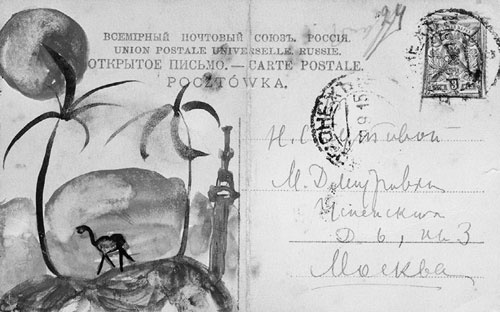 ВСЕМІРНЫЙ ПОЧТОВЫЙ СОЮЗЪ. РОССІЯ.
UNION POSTALE UNIVERSELLE. RUSSIE.
ОТКРЫТОЕ ПИСЬМО.—CARTE POSTALE.
POCZTÓWKA.
М. Дмитровка
Успенский
Д 6, кв 3
Москва